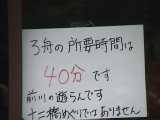 ろ舟の所要時間は
40分です
前川の遊らんです
十二橋めぐりではありません